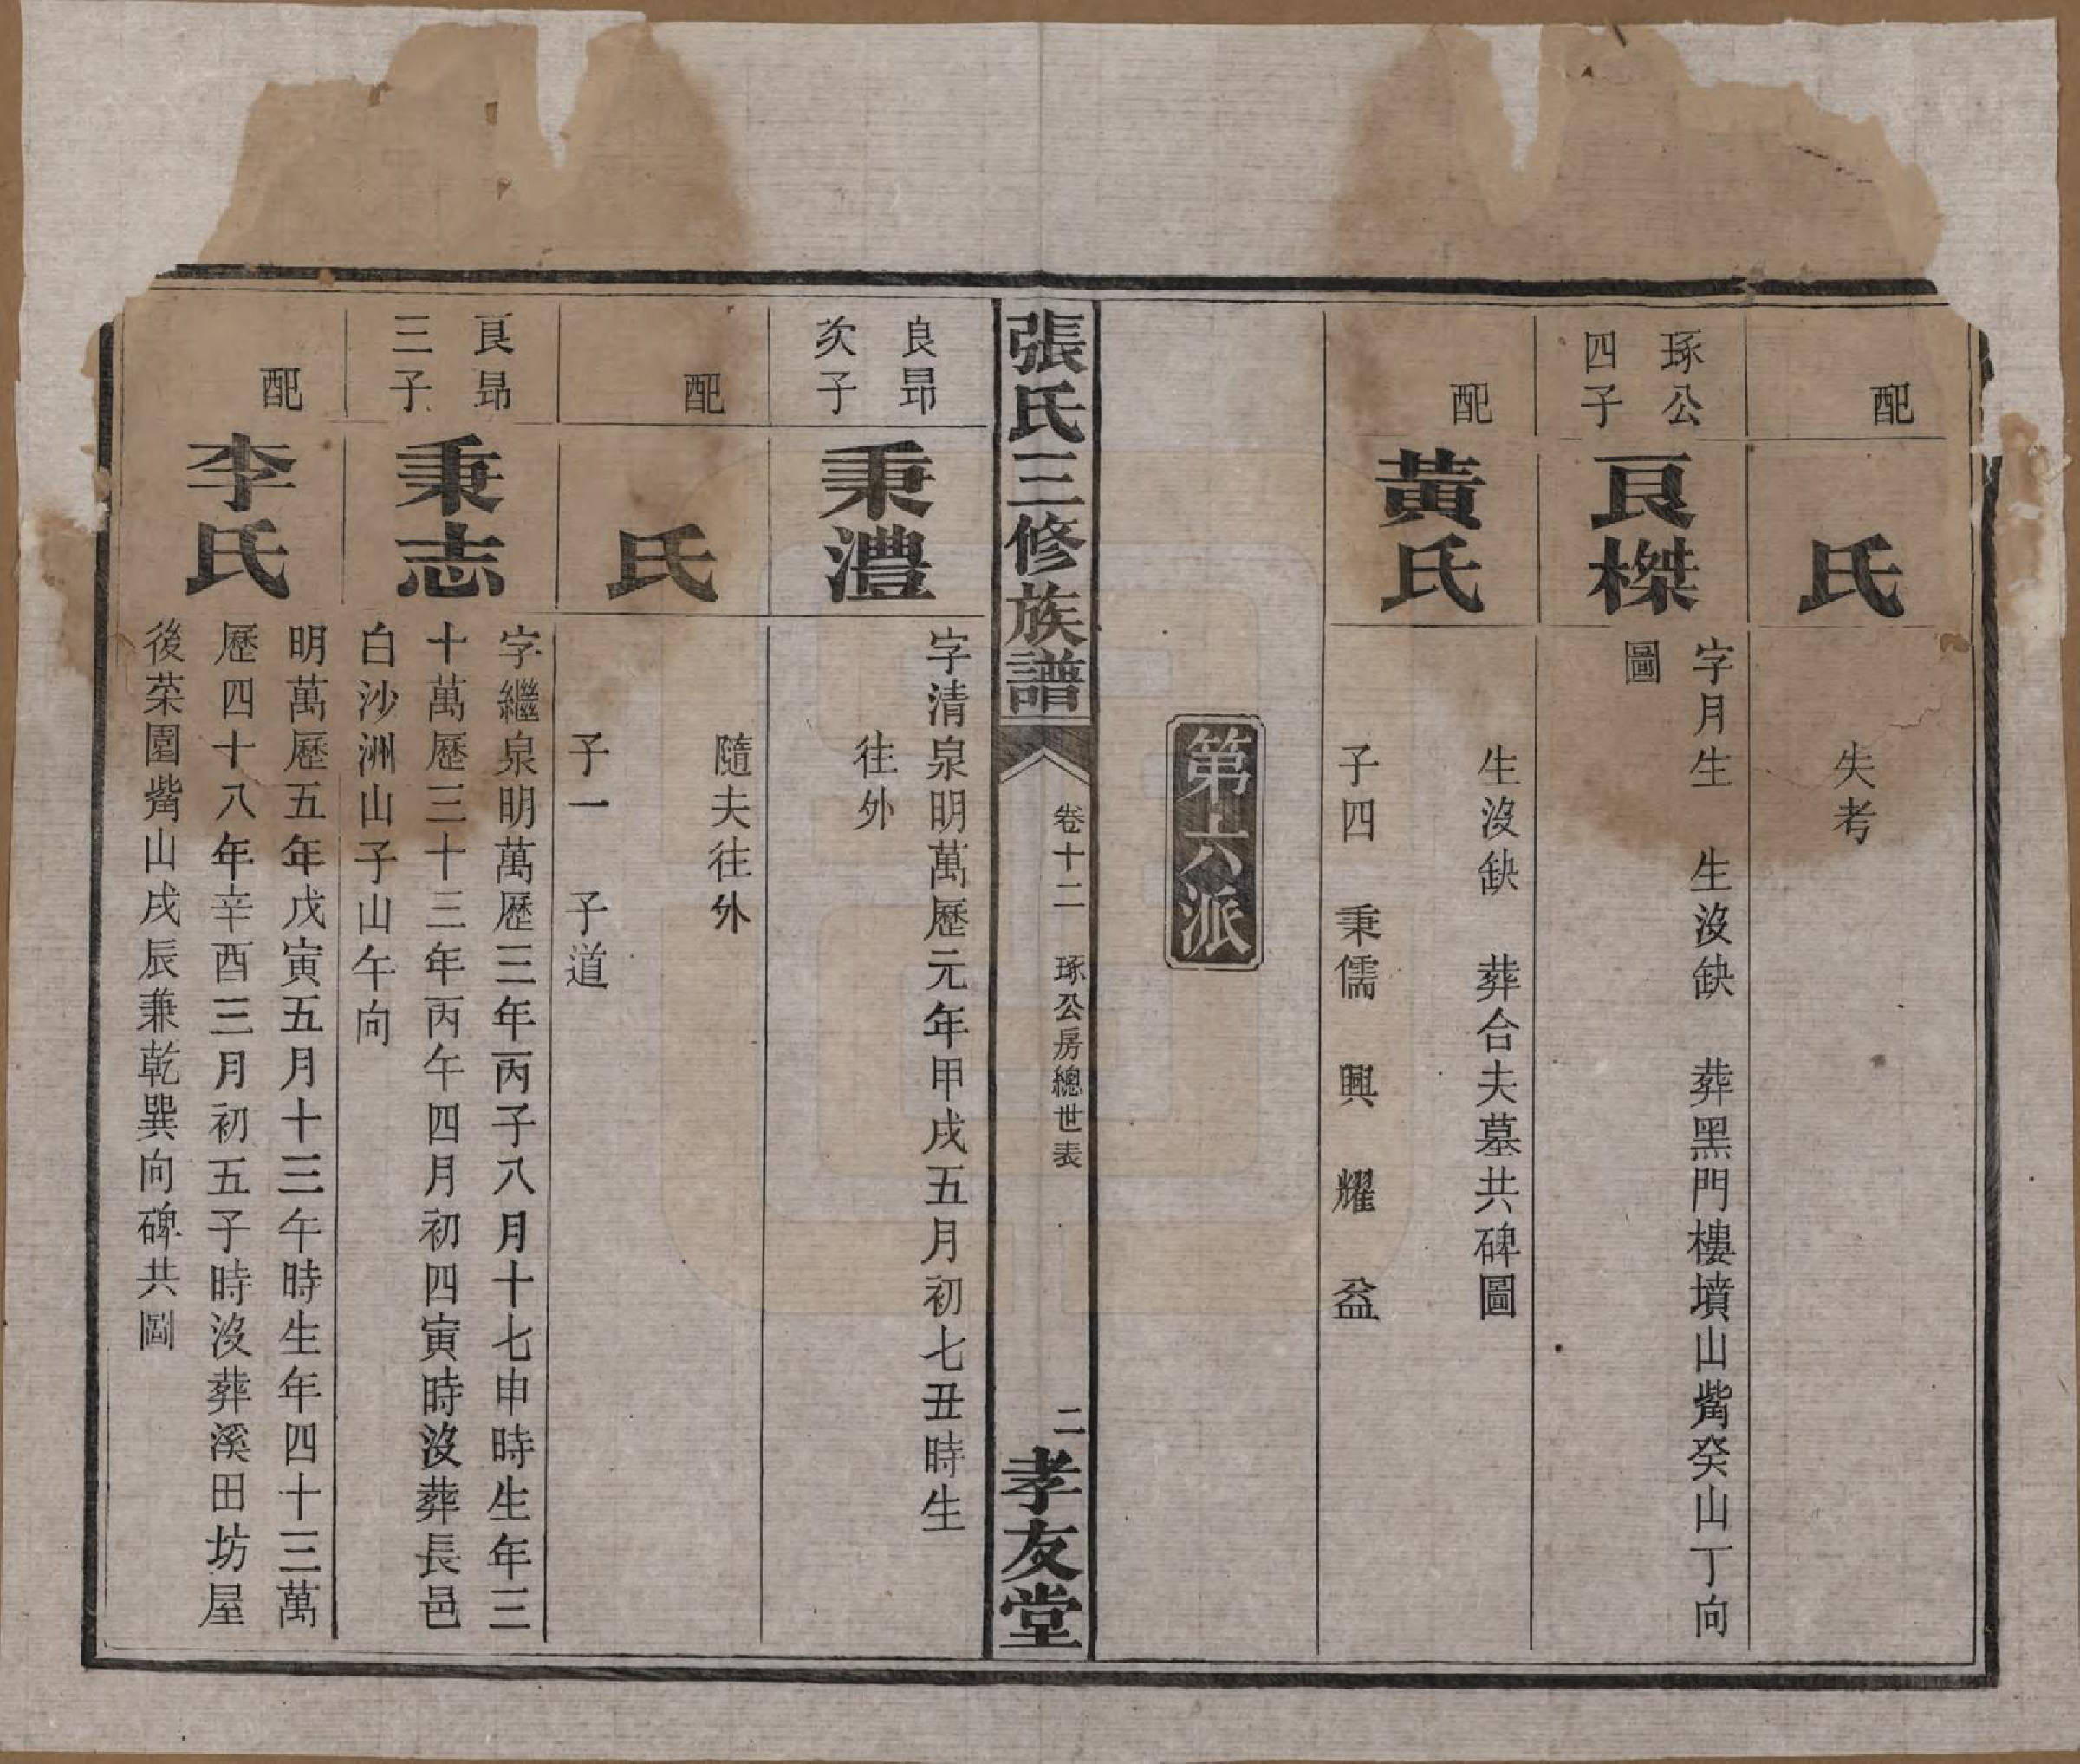 配
氏
失考
琢公
四子
良榤
字月生　生沒缺　葬黑門樓墳山觜癸山丁向
圖
配
黃氏
生沒缺　葬合夫墓共碑圖
子四　秉儒　興　耀　益
第六派
張氏三修族譜
卷十二　琢公房總世表
二
孝友堂
良昻
次子
秉灃
字清泉明萬歷元年甲戌五月初七丑時生
往外
配
氏
隨夫往外
子一　子道
良昻
三子
秉志
字繼泉明萬歷三年丙子八月十七申時生年三
十萬歷三十三年丙午四月初四寅時沒葬長邑
白沙洲山子山午向
配
李氏
明萬歷五年戊寅五月十三午時生年四十三萬
歷四十八年辛酉三月初五子時沒葬溪田坊屋
後菜園觜山戌辰兼乾巽向碑共圖